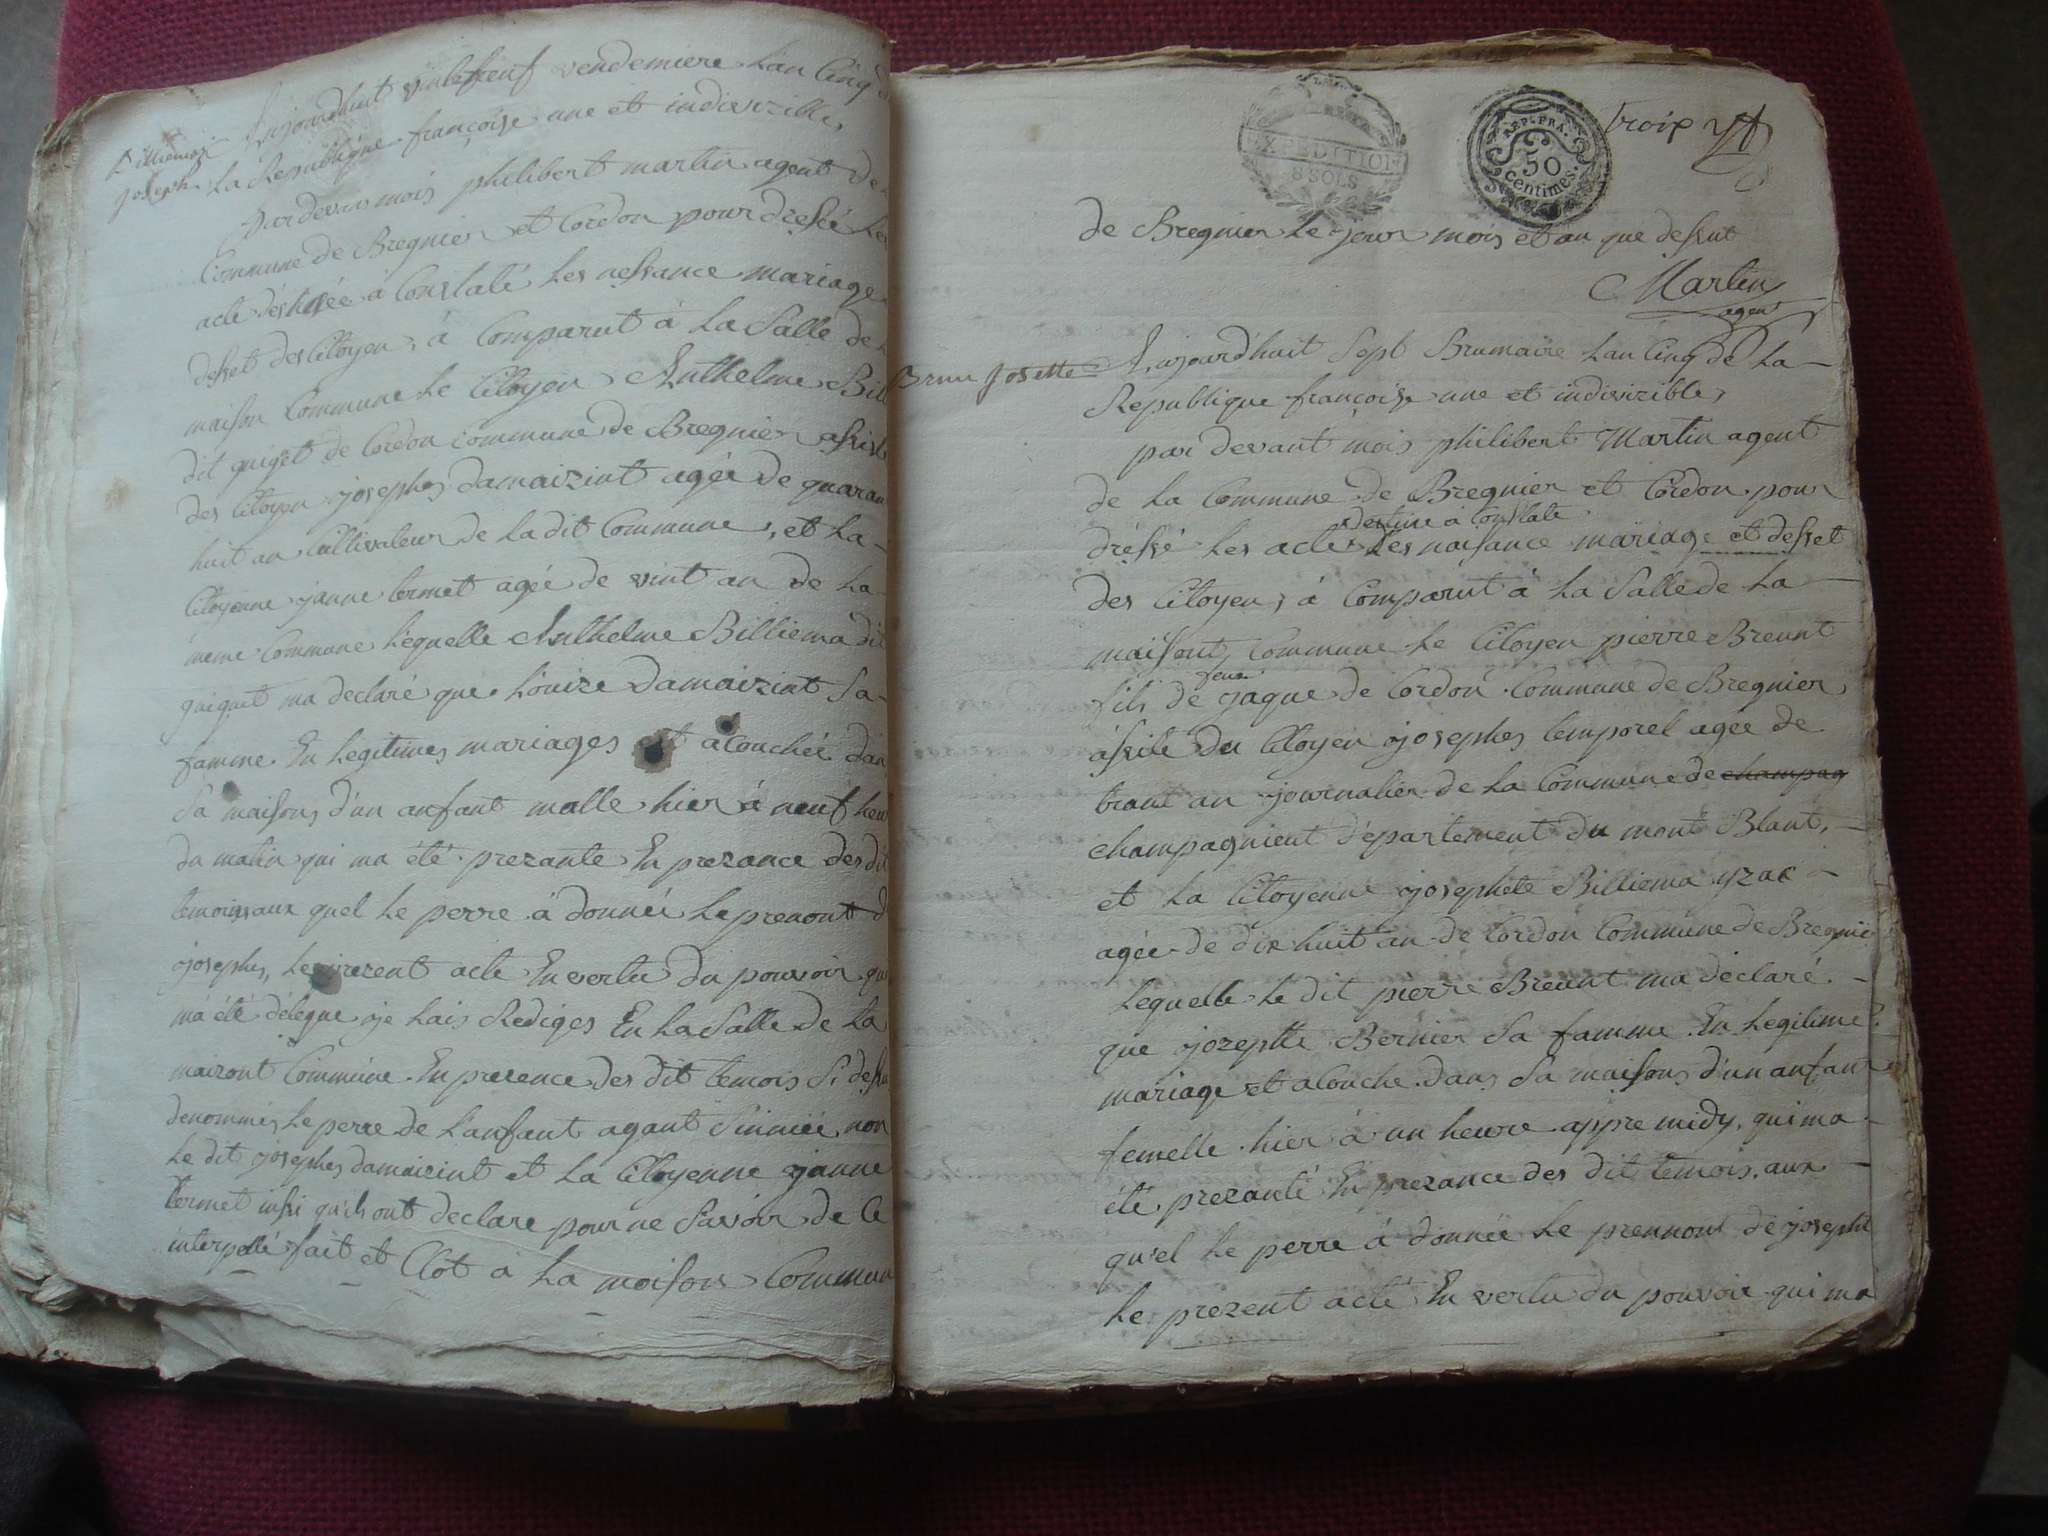 Billiemaz
joseph
Aujourdhuit vinteneuf vendemiere Lan Cinq d
La Republique françoise une et indivizible,
Pardevans mois philibert martin agent de
Commune de Bregnier et Cordon pour dressé Les
acte déstinée à Constaté Les nessance mariage
desset des Citoyen, à Comparut à La Salle de
maison Commune Le Citoyen Anthelme Bill
dit guiget de Cordon commune de Bregnier assist
des Citoyen josephes damaizint agée de quaran
huit an Cultivateur de La dit Commune, et La
Citoyenne janne termet agée de vint an de La
méme Commune Lequelle Anthelme Billiema dit
guiguet ma declaré que Louize Damaizint Sa
famme En Legitimes mariages et acouchée dan
Sa maisons d'un anfant malle hier à neuf heu
du matin qui ma été prezante En prezance des di
temoins aux quel Le perre à donnée Le prenont d
josephes, Le prezent acte En vertu du pouvoir qui
má été délegue je Lais Rediges En La Salle de La
maizont Commune En presence des dit temois Si dessu
denommés Le perre de Lanfant agant Sinnié non
Le dit josephes damaizint et La Citoyenne janne
termet insi qu'ils ont declare pour ne Savoir de Ce
interpellé fait et Clot à La moison Commun
EXPEDITION
8 SOLS
REP. FRA.
50
centimes.
troix
de Bregnier Le jour mois et an que dessut
Martin
agent
Brun Josette
Aujourdhuit Sept Brumaire Lan Cinq de La
Republique françoise une et indivizible,
par devant mois philibert Martin agent
de La Commune de Bregnier et Cordon pour
destine à Constate
dréssé Les acte Les naisance mariage et desset
des Citoyen, à Comparut à La Salle de La
maisont, Commune Le Citoyen pierre Breunt
feue
fils de jaque de Cordon Commune de Bregnier
ássité du Citoyen josephes temporel agée de
trant an journalier de La Commune de champag
champagnient département du mont Blant,
et La Citoyenne josephete Billiema yzac
agée de dix huit an de Cordon Commune de Bregnie
Lequelle Le dit pierre Breunt ma déclaré
que jozepthe Bernier Sa famme En Legitime
mariage et acouche dans Sa maisons d'un anfan
femelle hier à un heure appre midy, qui ma
été prezanté En prezance des dit temois, aux
qu'el Le perre à donnée Le prennont de joseptte
Le prezent acté En vertu du pouvoir qui ma